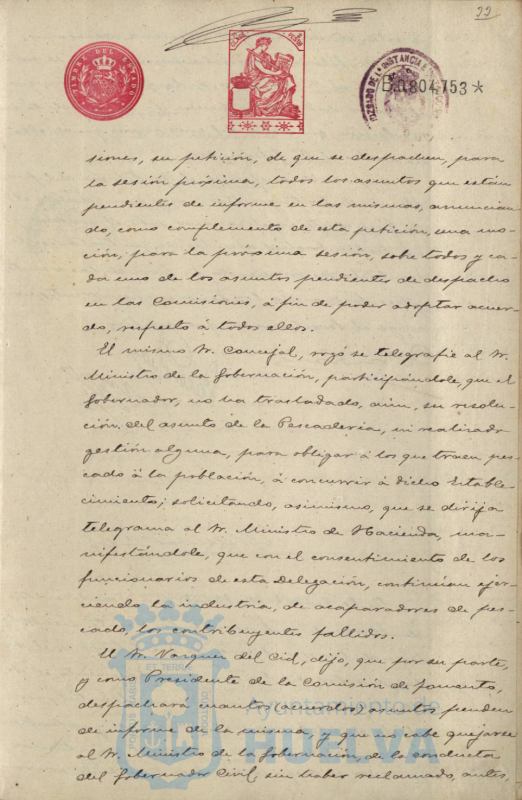 99
TIMBRE DEL ESTADO
B.0.804.753*
siones, su petición, de que se despachen, para
la sesión próxima, todos los asuntos que están
pendientes de informe en las mismas, anuncian-
do, como complemento de esta petición, una mo-
ción, para la próxima sesión, sobre todos y ca-
da uno de los asuntos pendientes de despacho
en las Comisiones, á fin de poder adoptar acuer-
do, respecto á todos ellos.
El mismo Sr. Concejal, rogó se telegrafíe al Sr.
Ministro de la Gobernación, participándole, que el
Gobernador, no ha trasladado, aún, su resolu-
ción, del asunto de la Pescadería, ni realizado
gestión alguna, para obligar á los que traen pes-
cado á la población, á concurrir á dicho Estable-
cimiento; solicitando, asimismo, que se dirija
telegrama al Sr. Ministro de Hacienda, ma-
nifestándole, que con el consentimiento de los
funcionarios de esta Delegación, continúan ejer-
ciendo la industria, de acaparadores de pes-
cado, los contribuyentes fallidos.
El Sr. Vazquez del Cid, dijo, que por su parte,
y como Presidente de la Comisión de fomento,
despachará cuantos acuerdos, asuntos penden
de informe de la misma, y que no cabe quejarse
al Sr. Ministro de la Gobernación, de la conducta
del Gobernador Civil, sin haber reclamado, antes,
Ayuntamiento de
HUELVA